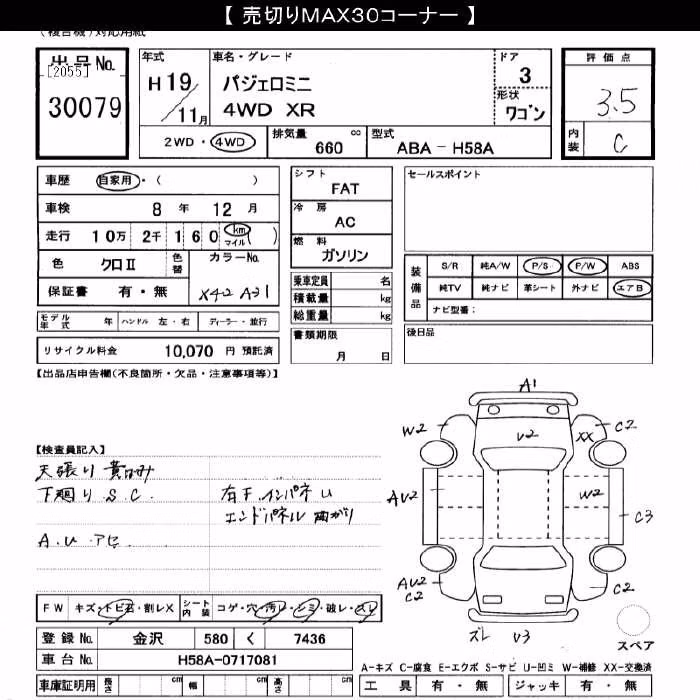 【 売切りMAX30コーナー 】
(複合機)対応用紙
出品No.
[2055]
30079
年式
H 19/11月
車名・グレード
パジェロミニ
4WD XR
ドア
3
形状
ワゴン
評価点
3.5
内装
C
2WD・4WD
排気量
660 cc
型式
ABA - H58A
車歴 自家用・( )
車検 8年 12月
走行 10万 2千 160 km マイル ( )
色 クロII 色替
カラーNo.
X42 A31
保証書 有・無
モデル年式 年 ハンドル 左・右 ディーラー・並行
リサイクル料金 10,070 円 預託済
シフト
FAT
冷房
AC
燃料
ガソリン
乗車定員 名
積載量 kg
総重量 kg
書類期限
月 日
セールスポイント
装備品
S/R 純A/W P/S P/W ABS
純TV 純ナビ 革シート 外ナビ エアB
ナビ型番:
後日品
【出品店申告欄(不良箇所・欠品・注意事項等)】
【検査員記入】
天張り 黄ばみ
下廻り S.C.
右F.インパネ U
エンドパネル 曲がり
A.U.アセ
A1
W2
C2
V2
XX
AU2
W2
C3
AU2
C2
C2
ズレ
V3
スペア
FW キズ・トビ石・割レX シート内装 コゲ・穴・汚レ・シミ・破レ・スレ
登録No. 金沢 580 く 7436
車台No. H58A-0717081
車庫証明用 長さ cm 幅 cm 高さ cm
A-キズ C-腐食 E-エクボ S-サビ U-凹ミ W-補修 XX-交換済
工具 有・無 ジャッキ 有・無